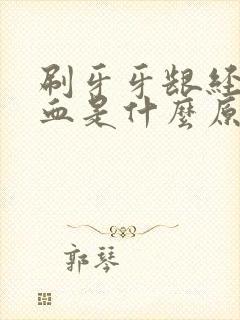 刷牙牙龈经
血是什麼原
郭琴